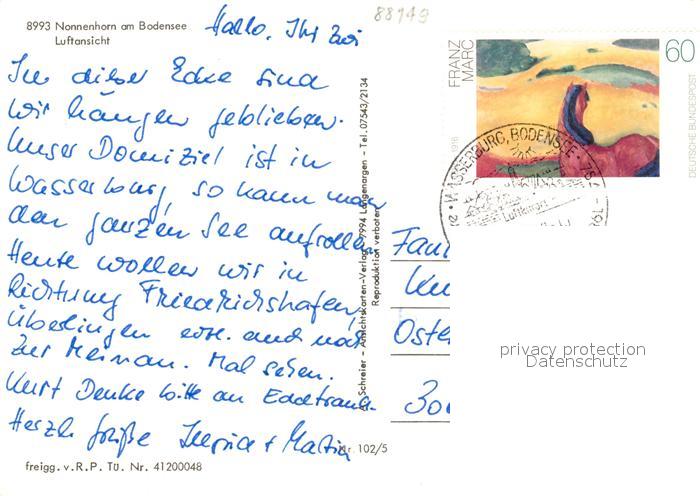 8993 Nonnenhorn am Bodensee
Luftansicht
88149
Hallo, Ihr Zwei
In dieser Ecke sind
wir hängen geblieben.
Unser Domiziel ist in
Wasserburg, so kann man
den ganzen See aufrollen
Heute wollen wir in
Richtung Friedrichshafen,
Überlingen evt. auch nach
zur Meinau. Mal sehen.
Kurt Denke bitte an
Herzl. Grüße + Martin
freigg. v. R. P. Tü. Nr. 41200048
Schreier - Ansichtskarten-Verlag - 7994 Langenargen - Tel. 07543/2134
Reproduktion verboten
Nr. 102/5
FRANZ
MARC
60
DEUTSCHE BUNDESPOST
WASSERBURG, BODENSEE
Luftkurort
Fam
Oste
privacy protection
Datenschutz